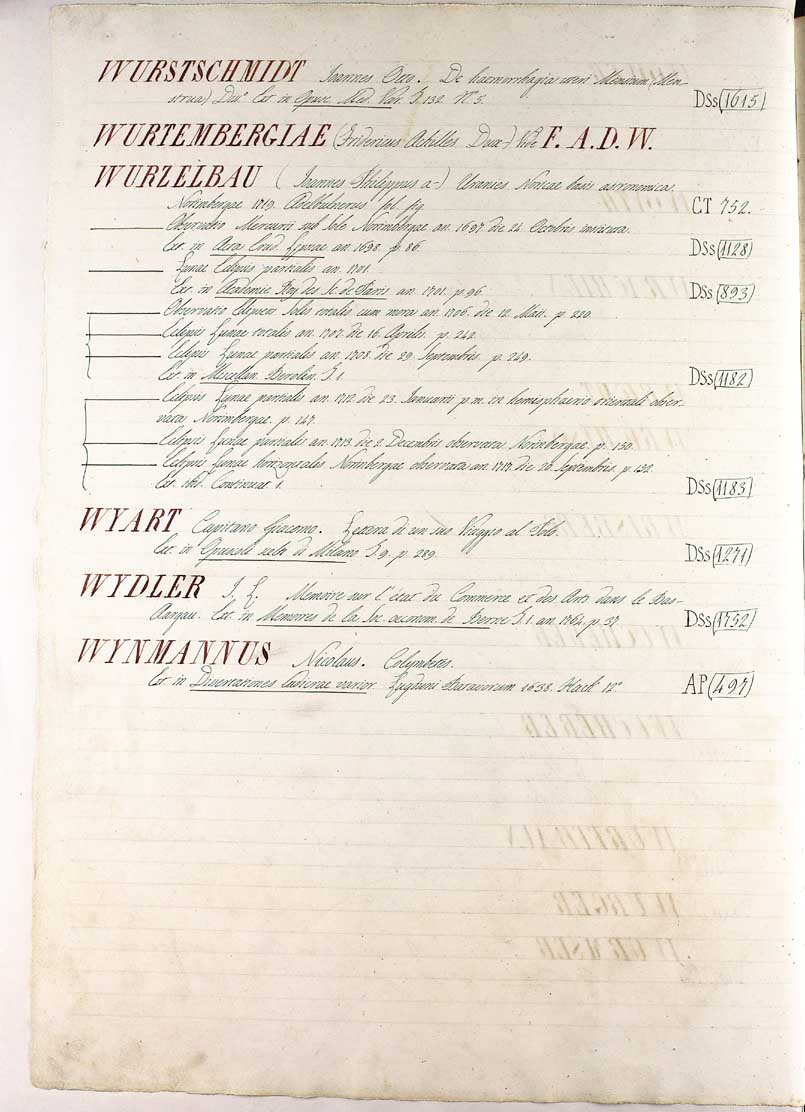 WURSTSCHMIDT Ioannes Otto. De haemorrhagia uteri Mensium Men-
strua) Diss.o Ext. in Opusc. Med. Var. T. 132. N.o 5. DSs 1615
WURTEMBERGIAE (Fridericus Achilles Dux-) Vide F. A. D. W.
WURZELBAU (Ioannes Philippus a-) Uranies Noricae basis astronomica.
Norimbergae 1719. Adelbulnerus fol. fig. CT 752.
Observatio Mercurii sub Sole Norimbergae an. 1697 die 24 Octobris
Ext. in Acta Erud. Lipsiae an. 1698. p. 86. DSs 1128
Lunae Eclipsis partialis an. 1701.
Ext. in Academie Roy. des Sc. de Paris an. 1701. p. 96. DSs 893
Observatio Eclipseos Solis totalis cum mora an. 1706. die 12. Maii. p. 220
Eclipsis Lunae totalis an. 1707. die 16. Aprilis. p. 242.
Eclipsis Lunae partialis an. 1708. die 29. Septembris. p. 249.
Ext. in Miscellan. Berolin. T. 1. DSs 1182
Eclipsis Lunae partialis an. 1712. die 23. Ianuarii p. m. in hemisphaerio orientali obser-
vata Norimbergae. p. 147.
Eclipsis Lunae partialis an. 1713. die 2. Decembris observata Norimbergae. p. 150.
Eclipsis Lunae horizontales Norimbergae observata an. 1717. die 20. Septembris. p. 152.
Ext. ibid. Continuat. 1. DSs 1183
WYART Capitano Giacomo. Lettera di un suo Viaggio al Polo.
Ext. in Opuscoli scelti di Milano T. 9. p. 289. DSs 1271
WYDLER I. L. Memoire sur l'état du Commerce et des Arts dans le Bas-
Aargau. Ext. in Memoires de la Soc. oeconom. de Berne T. 1. an. 1764. p. 37. DSs 1752
WYNMANNUS Nicolaus. Colymbetes.
Ext. in Dissertationes Ludicrae varior. Lugduni Batavorum 1638. Hack 12.o AP 497